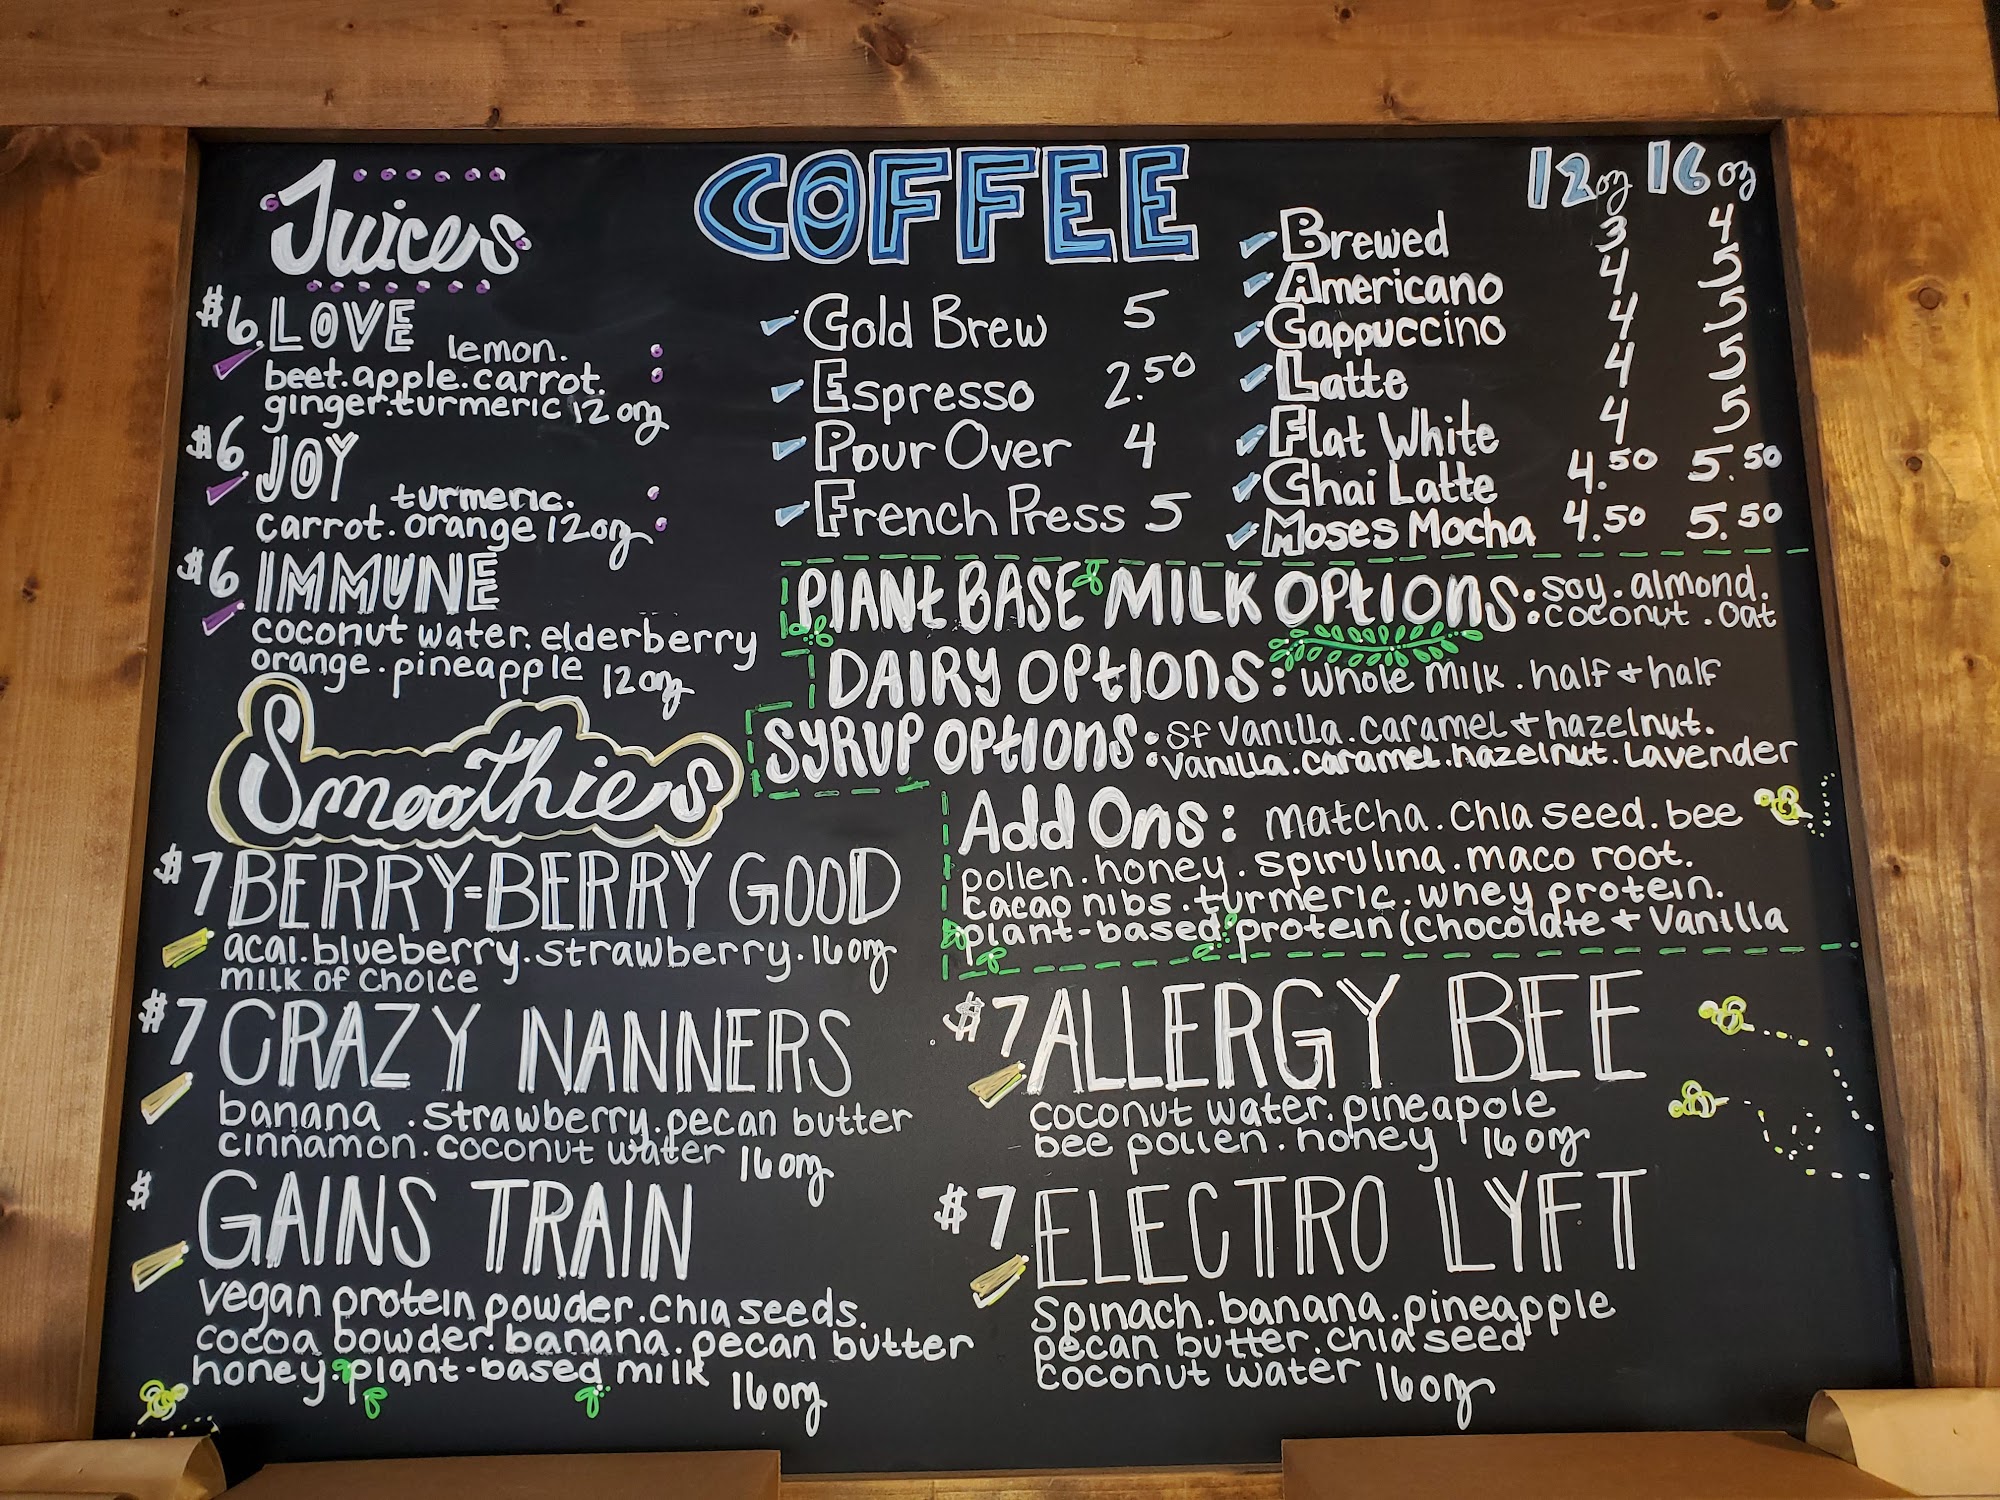 Juices
$6 LOVE
lemon.
beet.apple.carrot.
ginger.turmeric 12 oz
$6 JOY
turmeric.
carrot. orange 12oz
$6 IMMUNE
coconut water. elderberry
orange. pineapple 12oz
COFFEE
Cold Brew 5
Espresso 2.50
Pour Over 4
French Press 5
12oz 16oz
Brewed 3 4
Americano 4 5
Cappuccino 4 5
Latte 4 5
Flat White 4 5
Chai Latte 4.50 5.50
Moses Mocha 4.50 5.50
PLANT BASE MILK OPTIONS: soy. almond.
coconut. oat
DAIRY OPTIONS: whole milk. half + half
SYRUP OPTIONS: SF Vanilla. caramel + hazelnut.
Vanilla. caramel. hazelnut. Lavender
Add Ons: matcha. chia seed. bee
pollen. honey. spirulina. maco root.
cacao nibs. turmeric. whey protein.
plant-based protein (Chocolate + Vanilla
Smoothies
$7 BERRY-BERRY GOOD
acai. blueberry. strawberry. 16oz
milk of choice
$7 CRAZY NANNERS
banana . strawberry. pecan butter
cinnamon. coconut water 16oz
$ GAINS TRAIN
Vegan protein powder. chia seeds.
cocoa bowder. banana. pecan butter
honey. plant-based milk 16oz
$7 ALLERGY BEE
coconut water. pineapole
bee pollen. honey 16oz
$7 ELECTRO LYFT
Spinach. banana. pineapple
pecan butter. chia seed
coconut water 16oz